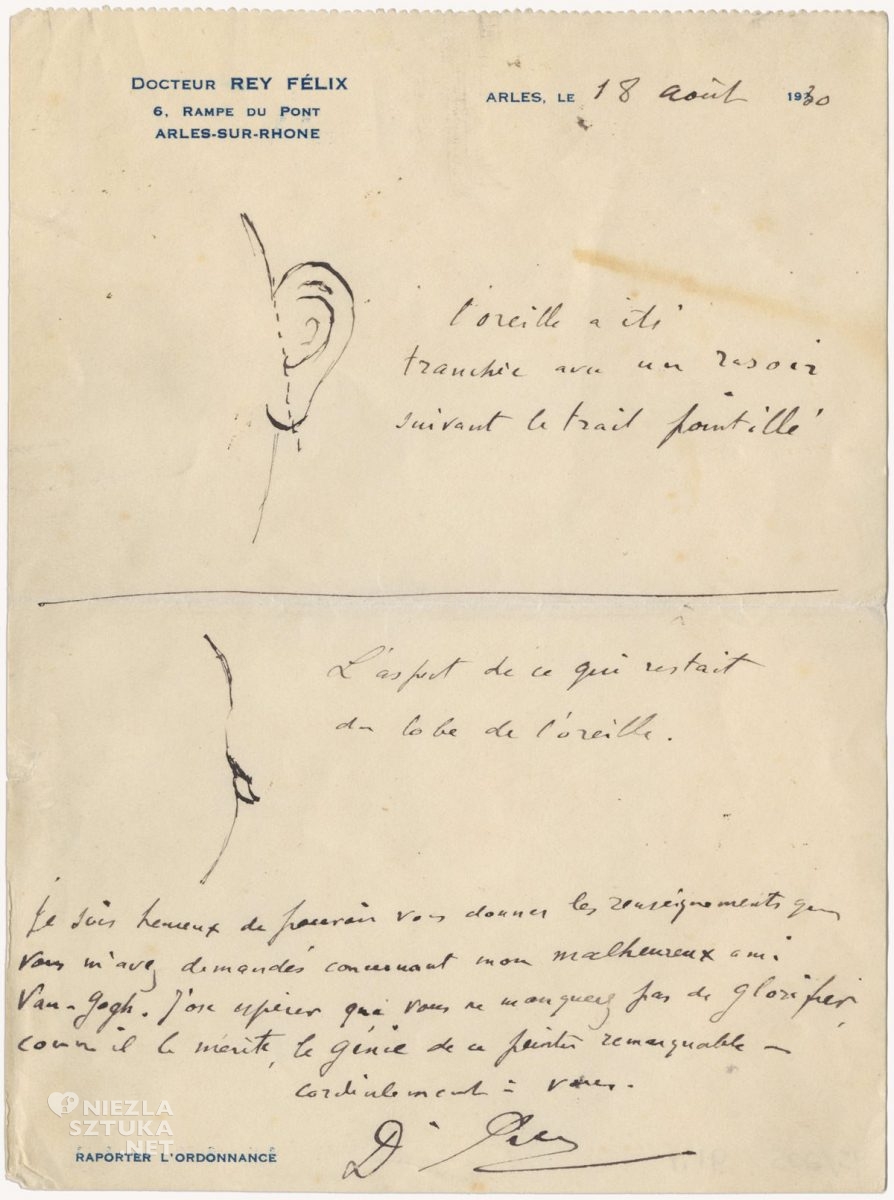 DOCTEUR REY FÉLIX
6, RAMPE DU PONT
ARLES-SUR-RHONE
ARLES, LE 18 août 1930
l'oreille a été
tranchée avec un rasoir
suivant le trait pointillé
L'aspect de ce qui restait
du lobe de l'oreille.
Je suis heureux de pouvoir vous donner les renseignements que
vous m'avez demandés concernant mon malheureux ami
Van-Gogh. J'ose espérer que vous ne manquerez pas de glorifier,
comme il le mérite, le génie de ce peintre remarquable —
cordialement à vous.
Dr Rey
NIEZLA
SZTUKA
NET
RAPORTER L'ORDONNANCE